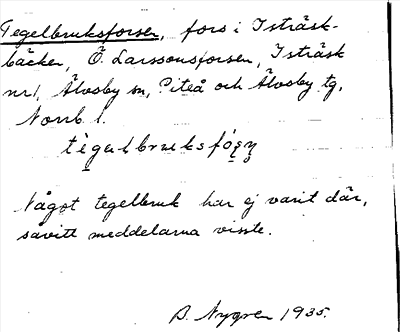 Tegelbruksforsen, fors i Isträsk-
bäcken, Ö. Larssonsforsen, Isträsk
nr 1, Älvsby sn, Piteå och Älvsby tg,
Norrb l.
Något tegelbruk har ej varit där,
såvitt meddelarna visste.
B. Nygren 1935.